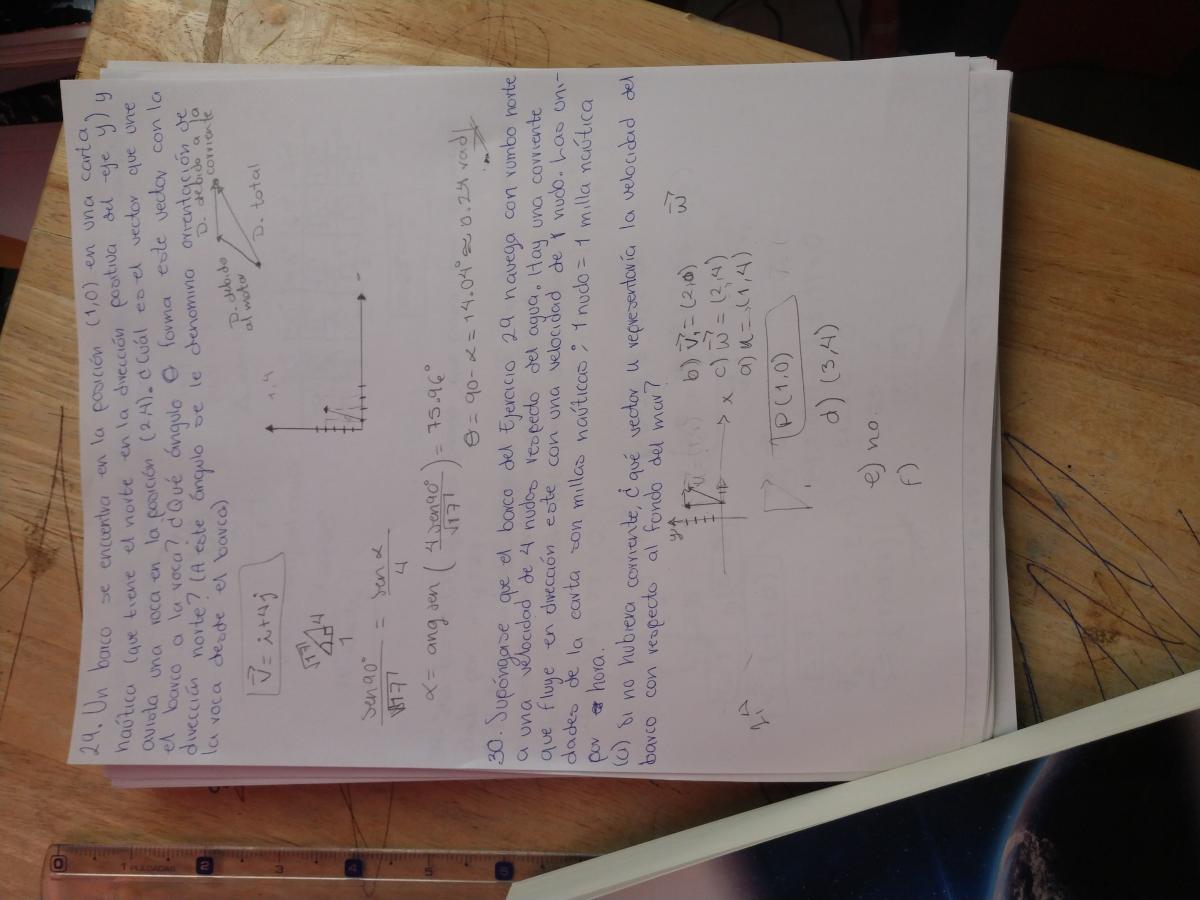 29. Un barco se encuentra en la posición (1,0) en una carta
naútica (que tiene el norte en la dirección positiva del eje y) y
avista una roca en la posición (2,4). ¿Cuál es el vector que une
el barco a la roca? ¿Qué ángulo θ forma este vector con la
dirección norte? (A este ángulo se le denomina orientación de
la roca desde el barco)
D. debido
al motor
D. debido a la
corriente
D. total
1,4
V⃗ = i+4j
√17
4
1
sen90°/√17 = senα/4
α = ang sen (4sen90°/√17) = 75.96°
θ = 90 - α = 14.04° ≈ 0.24 rad
30. Supóngase que el barco del Ejercicio 29 navega con rumbo norte
a una velocidad de 4 nudos respecto del agua. Hay una corriente
que fluye en dirección este con una velocidad de 1 nudo. Las uni-
dades de la carta son millas naúticas; 1 nudo = 1 milla naútica
por hora.
(a) Si no hubiera corriente, ¿qué vector u representaría la velocidad del
barco con respecto al fondo del mar?
y
x
b) V⃗₁ = (2,0)
c) w⃗ = (2,4)
a) u = (1,4)
w⃗
P(1,0)
d) (3,4)
e) no
f)
0
1 PULGADAS
2
3
4
5
6